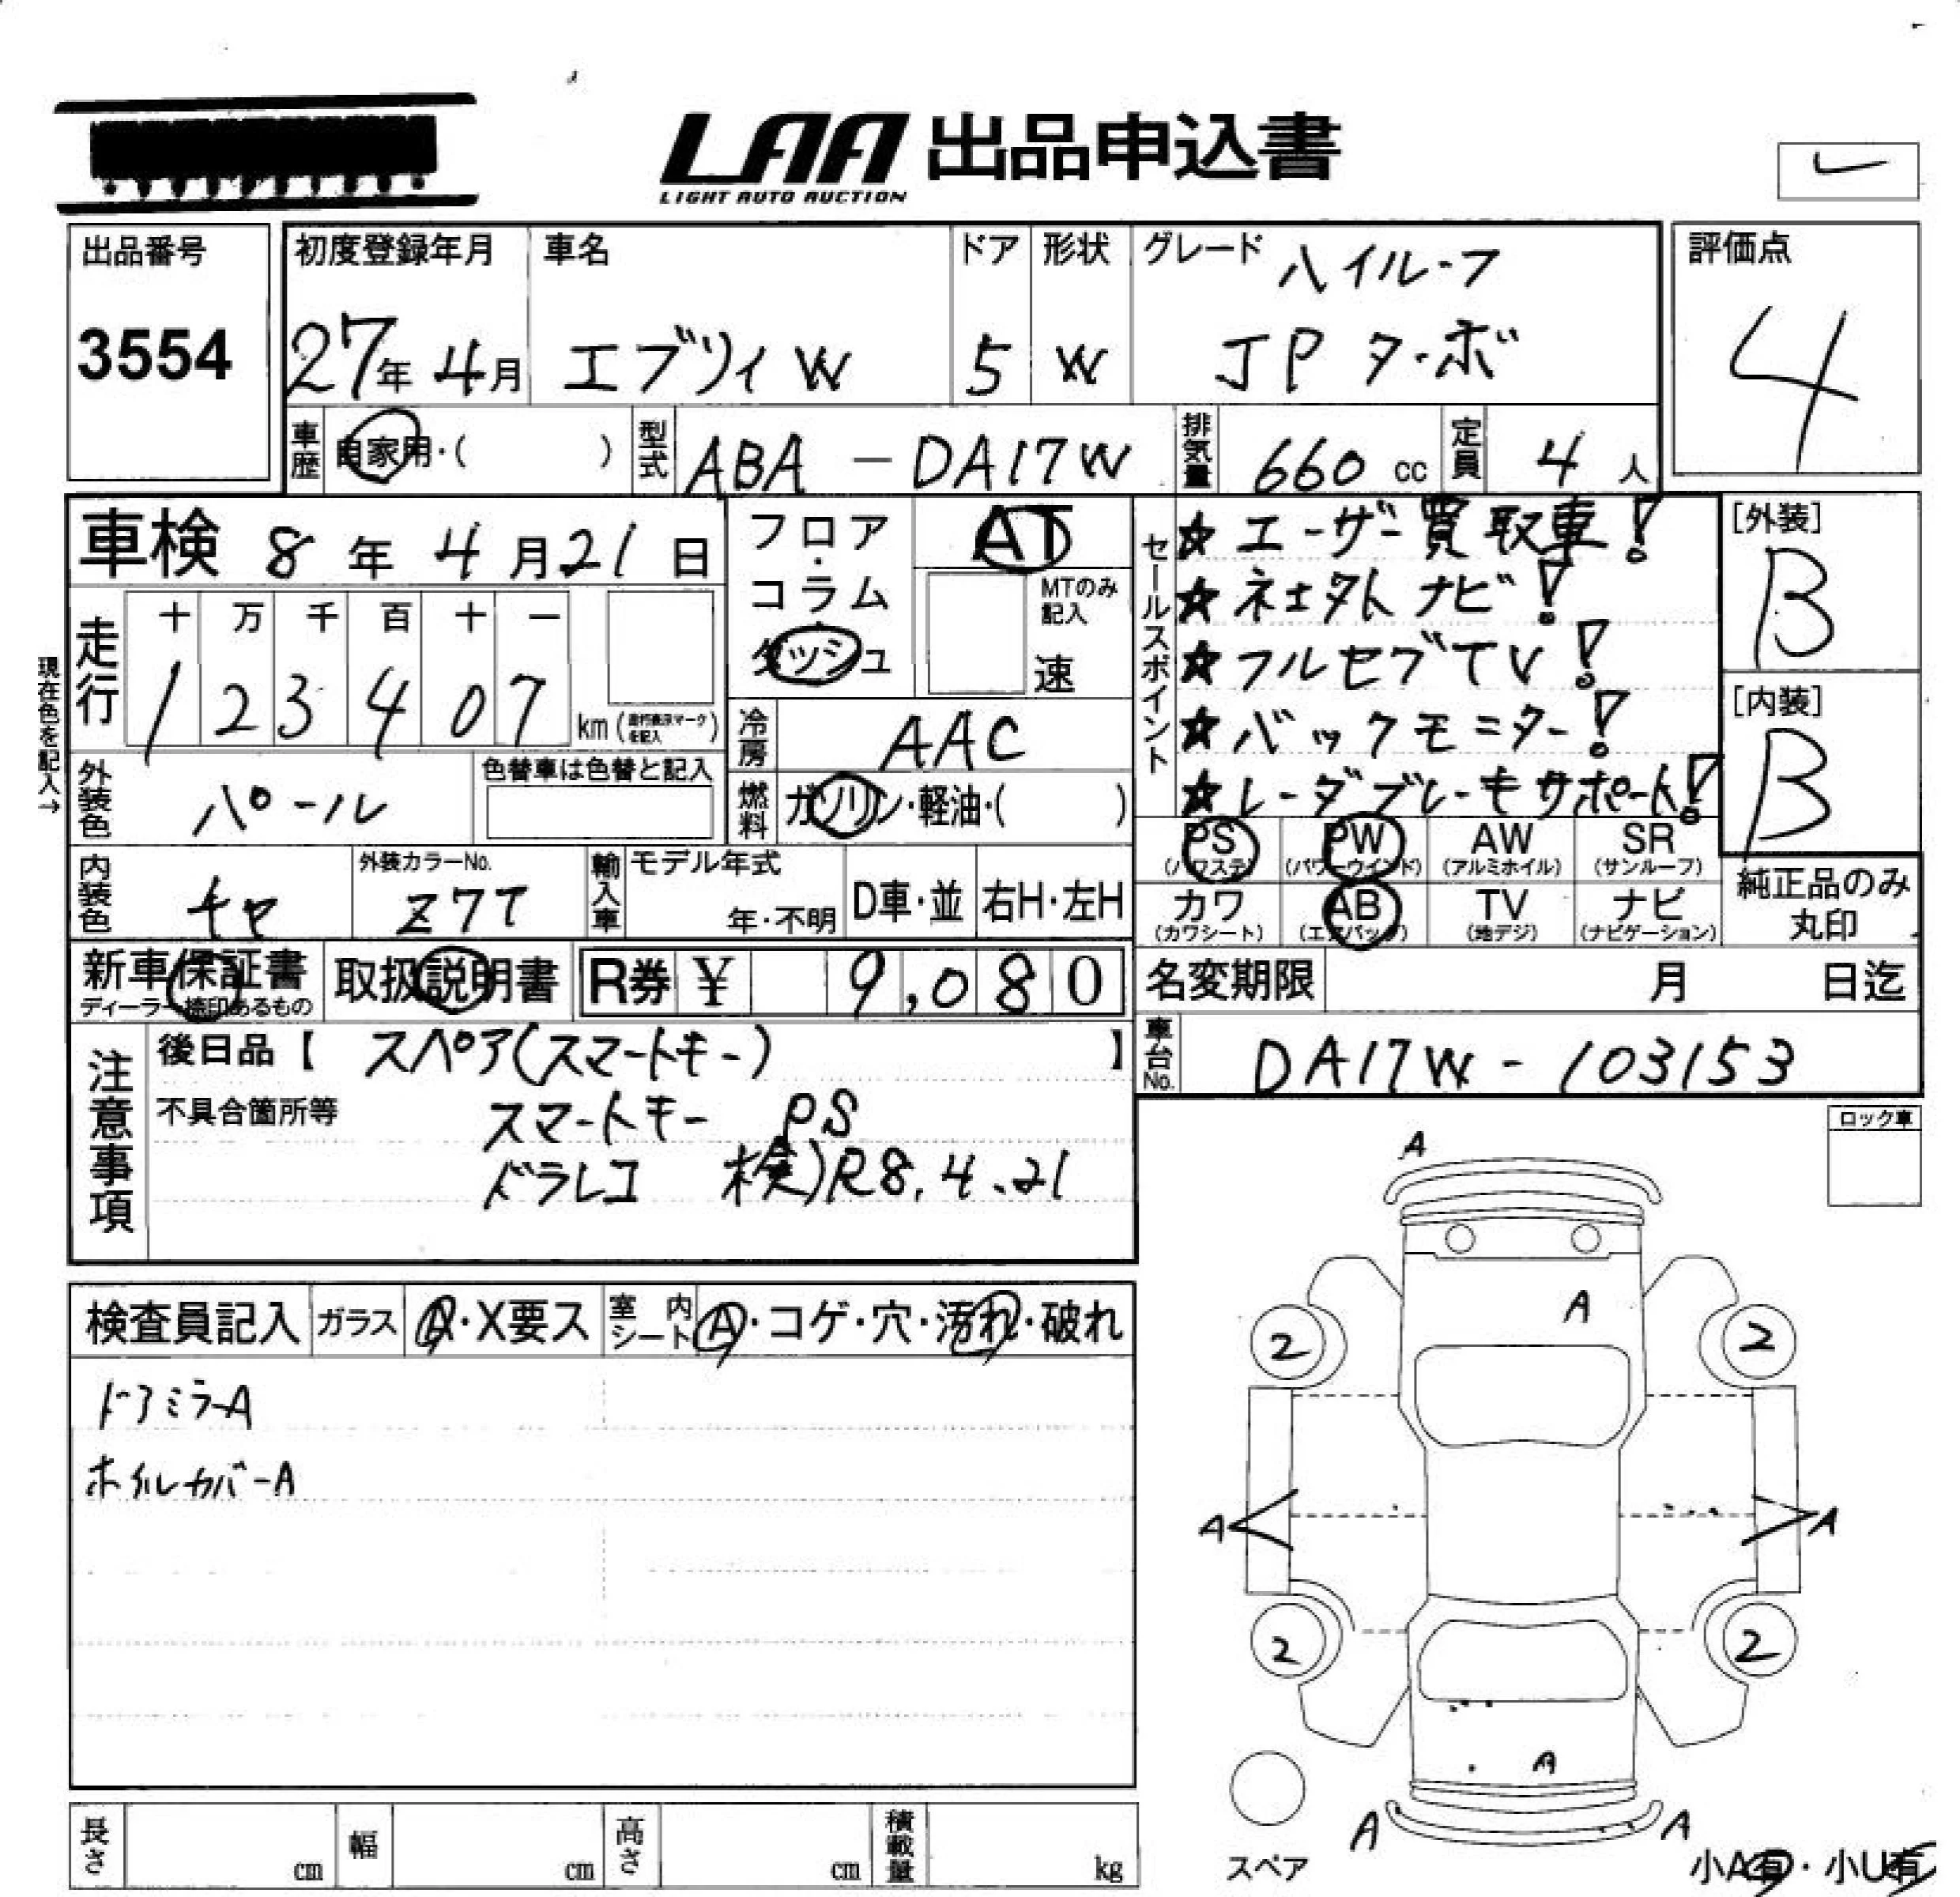 LAA 出品申込書
LIGHT AUTO AUCTION
出品番号 初度登録年月 車名 ドア 形状 グレード ハイルーフ 評価点
3554 27年 4月 エブリィW 5 W JPターボ 4
車歴 自家用・( ) 型式 ABA-DA17W 排気量 660 cc 定員 4 人
車検 8年 4月 21日 フロア・コラム・ダッシュ AT MTのみ記入 速
セールスポイント
☆ユーザー買取車!
☆社外ナビ!
☆フルセグTV!
☆バックモニター!
☆レーダブレーキサポート!
[外装] B
[内装] B
現在色を記入→
走行 十 万 千 百 十 一
1 2 3 4 0 7 km
冷房 AAC
外装色 パール 色替車は色替と記入 燃料 ガソリン・軽油・( )
PS (パワステ) PW (パワーウインド) AW (アルミホイル) SR (サンルーフ)
カワ (カワシート) AB (エアバッグ) TV (地デジ) ナビ (ナビゲーション)
純正品のみ丸印
内装色 チャ 外装カラーNo. Z7T 輸入車 モデル年式 年・不明 D車・並 右H・左H
新車保証書 ディーラー捺印あるもの 取扱説明書 R券 ¥ 9,080 名変期限 月 日迄
車台No. DA17W-103153
注意事項 後日品【 スペア(スマートキー) 】
不具合箇所等 スマートキー PS
ドラレコ 検)R8.4.21
ロック車
検査員記入 ガラス A・X要ス 室内シート A・コゲ・穴・汚れ・破れ
ドアミラーA
ホイルカバーA
A
A
2 2
A A
2 2
A
A A
スペア 小A有・小U有
長さ cm 幅 cm 高さ cm 積載量 kg